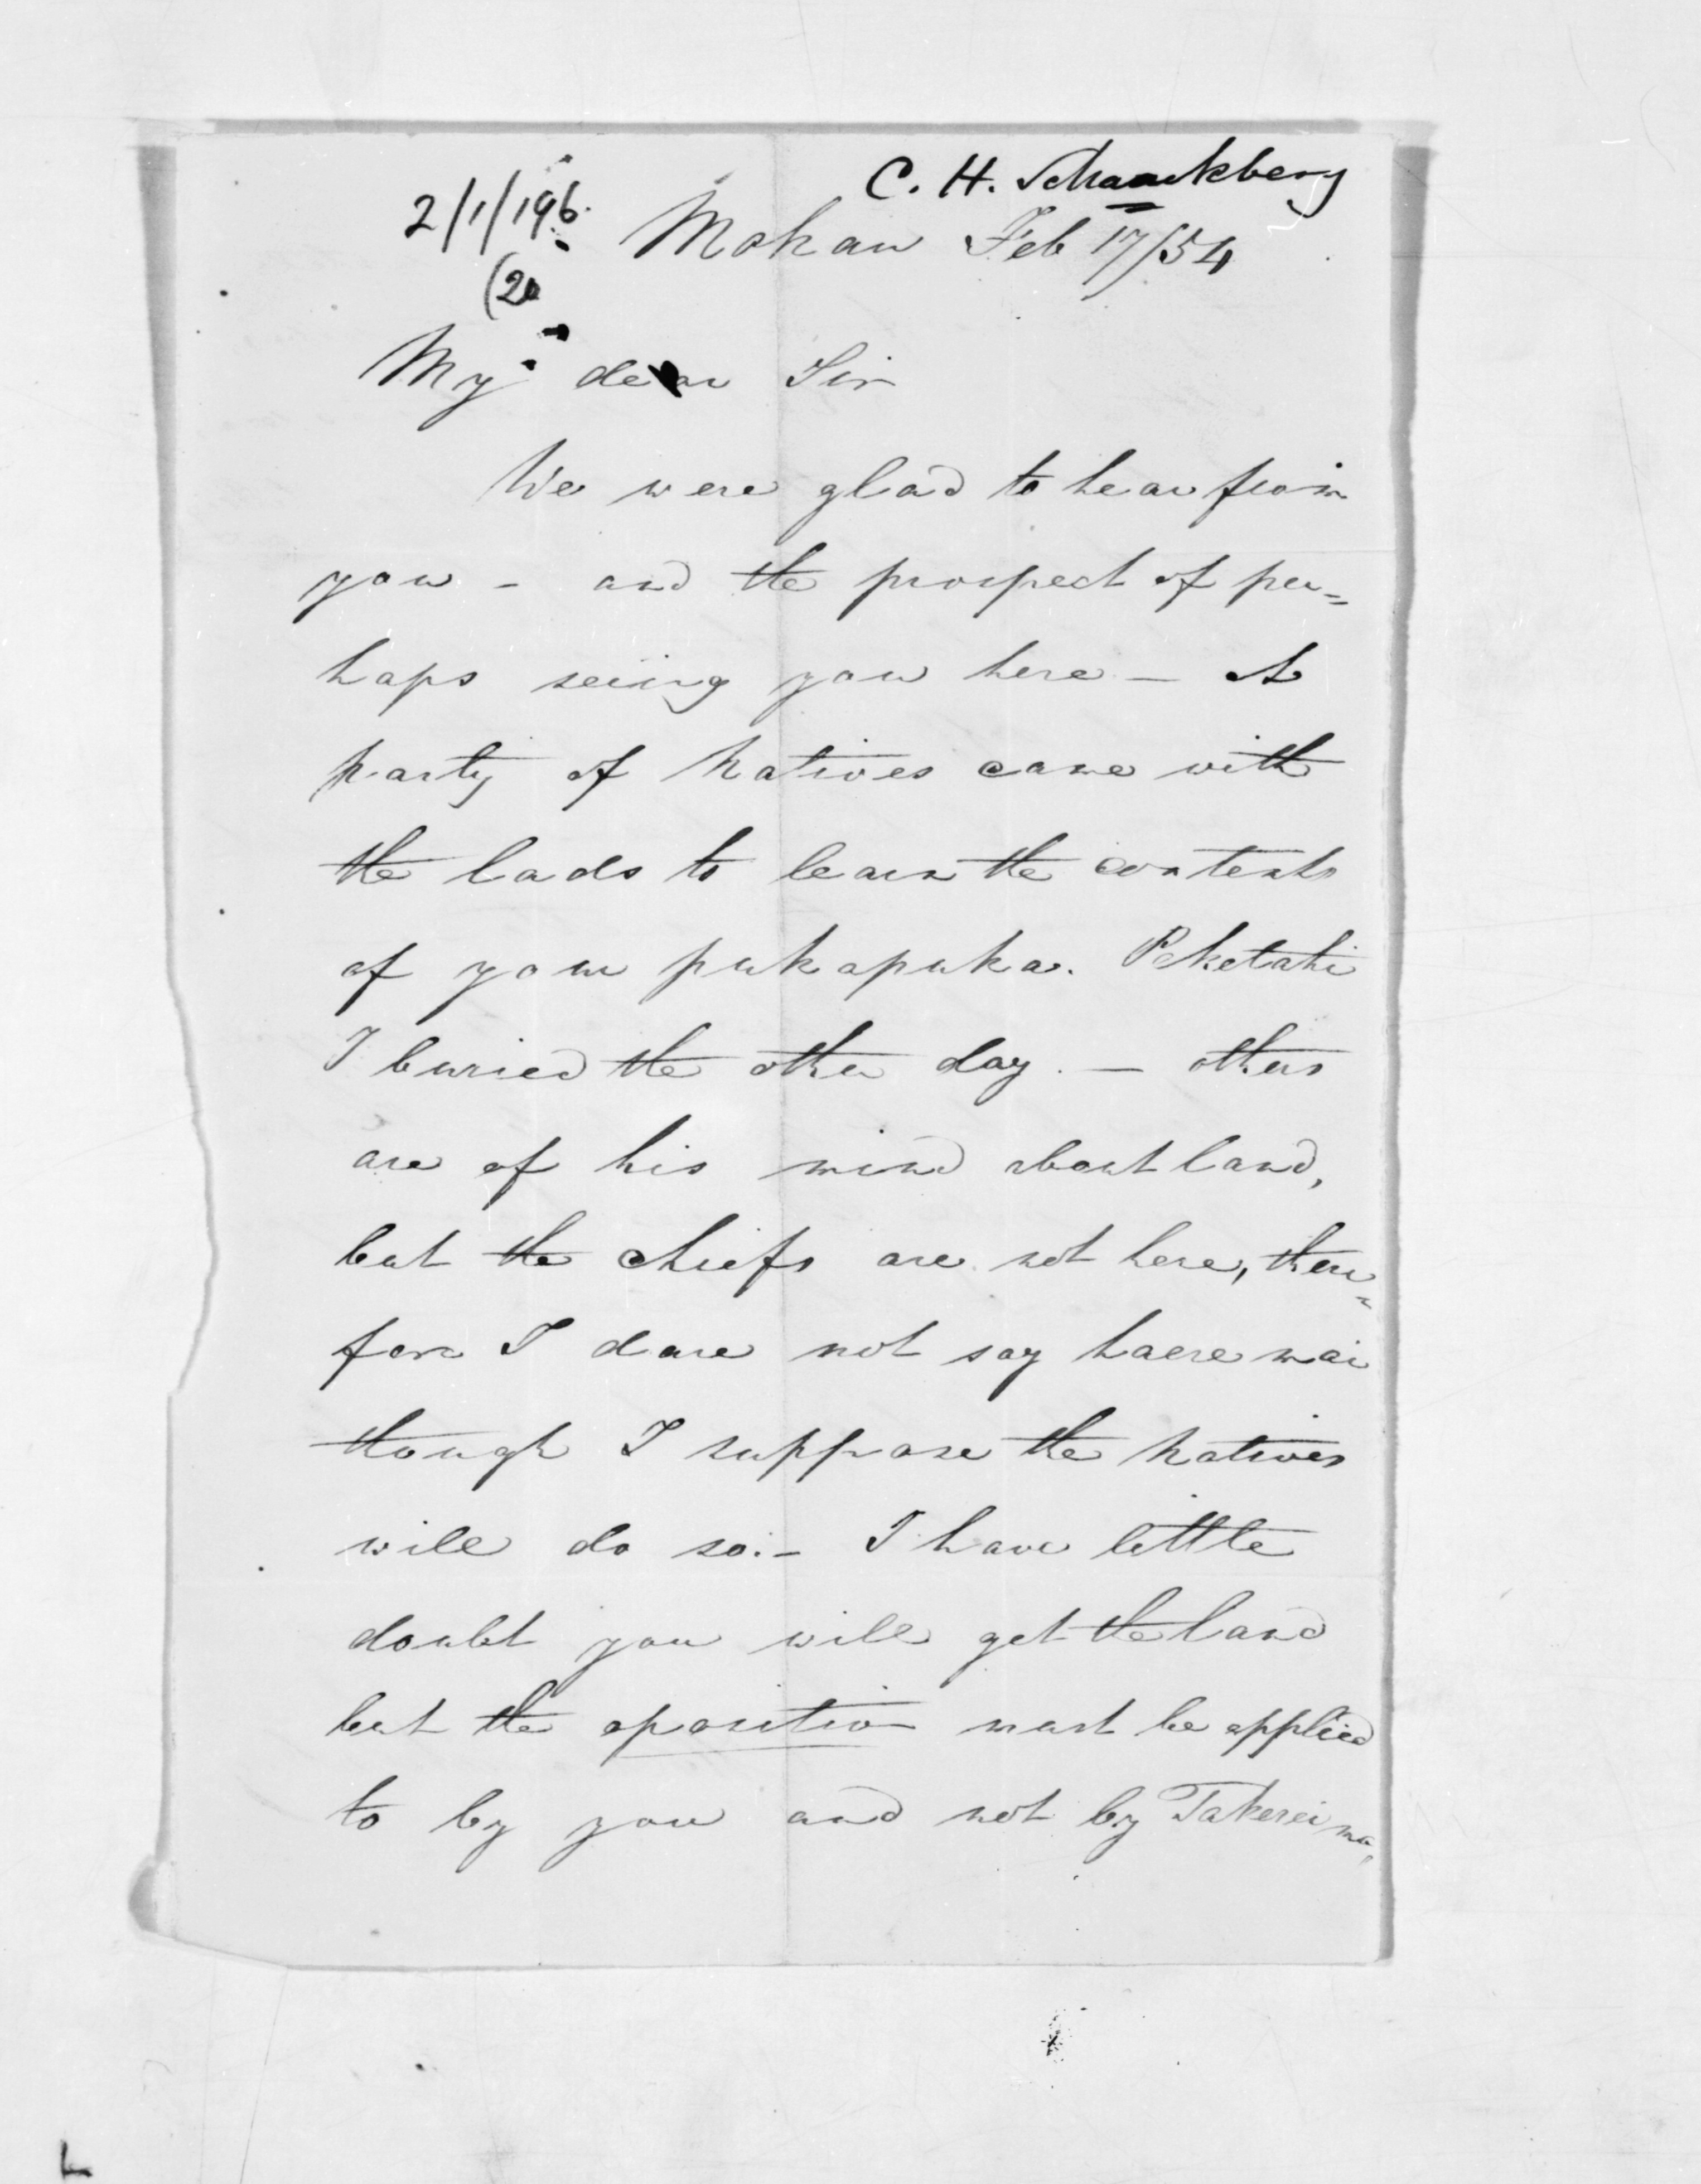 C. H. Schnackberg
2/1/196.
Mokau Feb 17/54
(20
My dear Sir
We were glad to hear from
you - and the prospect of per=
haps seeing you here - A
party of Natives came with
the lads to learn the contents
of your pukapuka. Peketahi
I buried the other day. - others
are of his mind about land,
but the chiefs are not here, there=
fore I dare not say haere mai
though I suppose the Natives
will do so. - I have little
doubt you will get the land
but the oposition must be applied
to by you and not by Takerei ma,